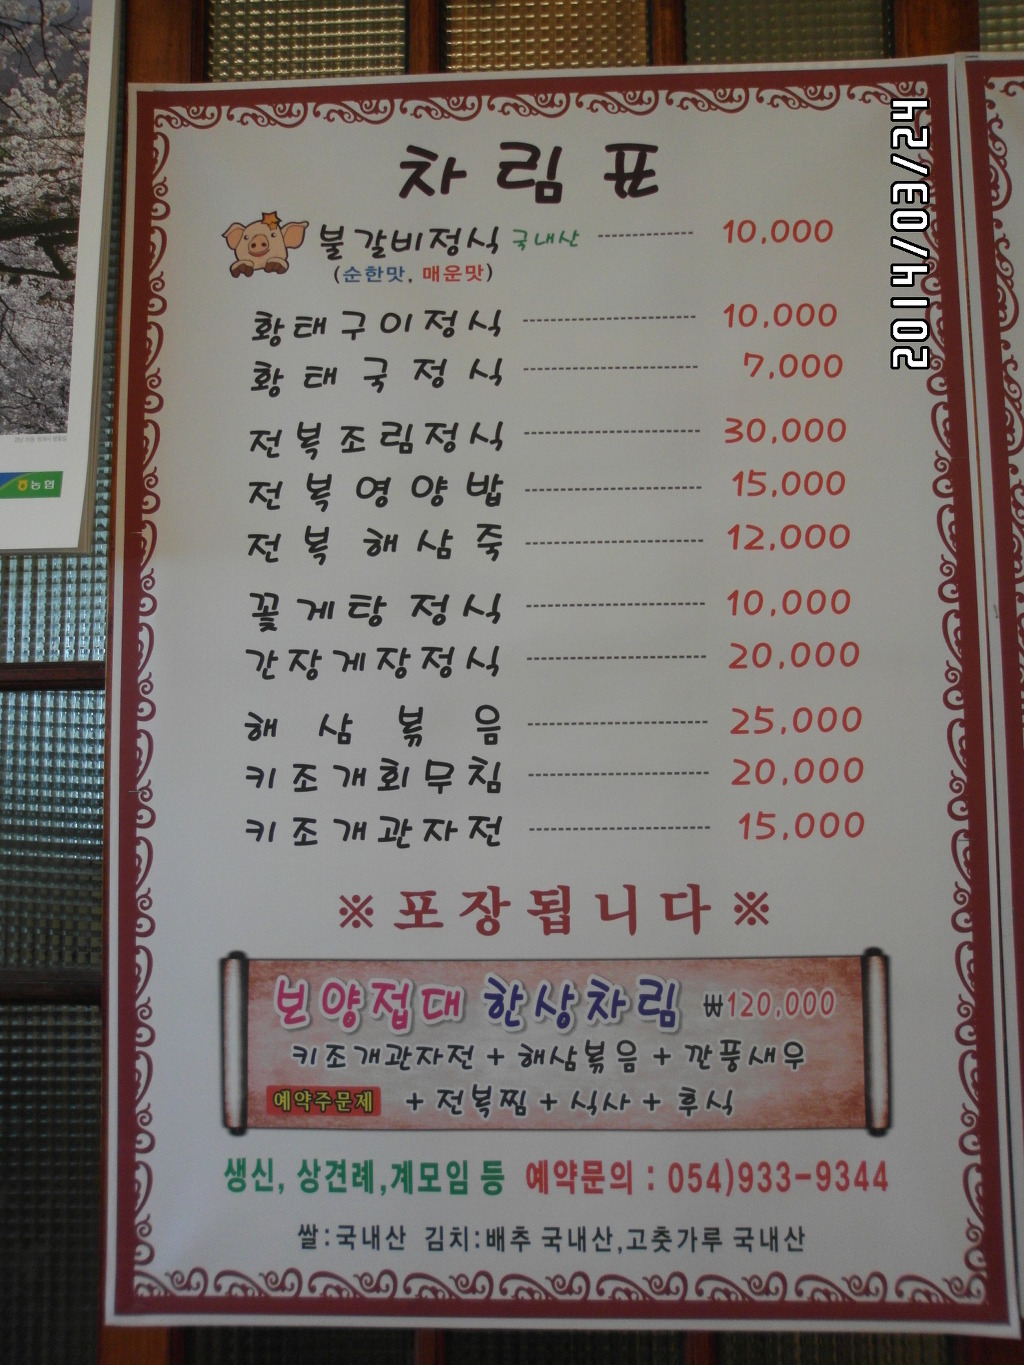 차림표
불갈비정식 국내산 10,000
(순한맛, 매운맛)
황태구이정식 10,000
황태국정식 7,000
전복조림정식 30,000
전복영양밥 15,000
전복해삼죽 12,000
꽃게탕정식 10,000
간장게장정식 20,000
해삼볶음 25,000
키조개회무침 20,000
키조개관자전 15,000
※포장됩니다※
보양접대 한상차림 ₩120,000
키조개관자전 + 해삼볶음 + 깐풍새우
예약주문제 + 전복찜 + 식사 + 후식
생신, 상견례,계모임 등 예약문의 : 054)933-9344
쌀:국내산 김치:배추 국내산,고춧가루 국내산
2014/03/24
농협